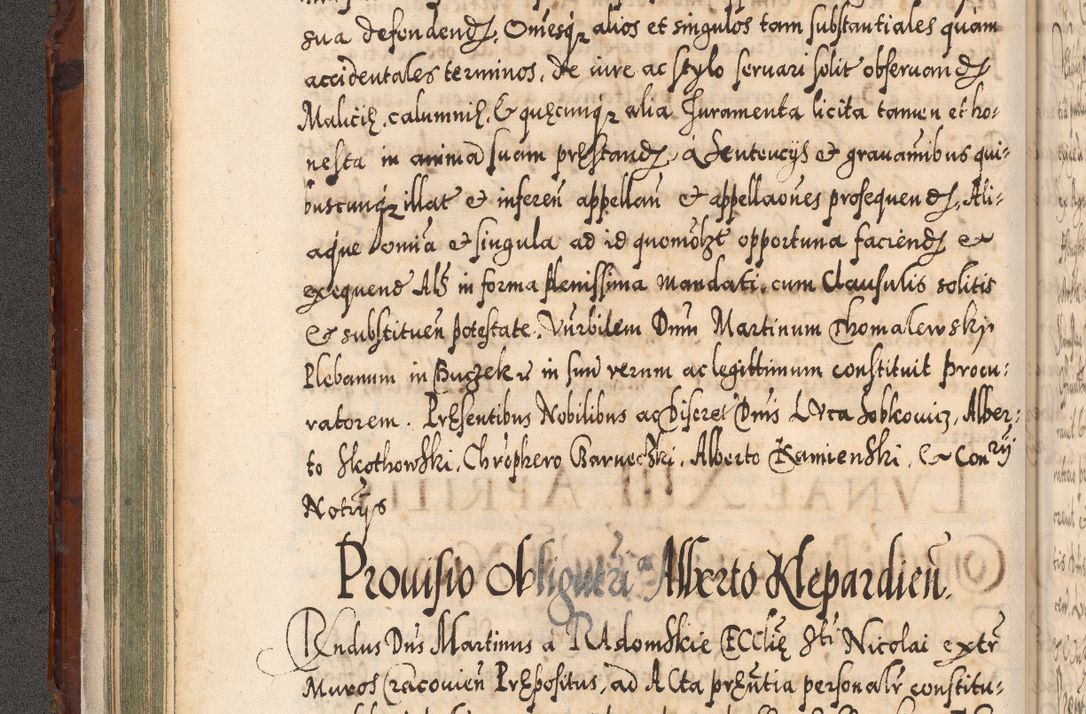 sua defendend, Omesq alios et singulos tam substantiales quam
accidentales terminos, de iure ac stylo seruari solit obseruand
Malicię, calumnię, & quęcunq alia Juramenta licita tamen et ho-
nesta in animā suam pręstand, a Sentencijs & grauaminibus qui-
buscunq illat & inferen appellan & appellaones prosequend, Ali-
aque omia & singula ad id quomolzt opportuna faciend &
exequend Als in forma plenissima mandati, cum Clausulis solitis
& substituen potestate. Vnrbilem Dnm Martinum Chomalewskj
Plebanum in Buczek in suu verum ac legittimum constituit Procu-
ratorem. Pręsentibus Nobilibus ac Discret Dnis Luca Sobkowicz, Alber-
to Skothowski, Chrophero Barueczki, Alberto Kamienski, & Conrij
Notrijs
Prouisio Obligueri as Alberto Klepardien.
Rndus Dns Martinus a RAdomskie ECClię Sti Nicolai extr
Muros Cracouien PrEpositus, ad ACta pręntia personalr constitu-